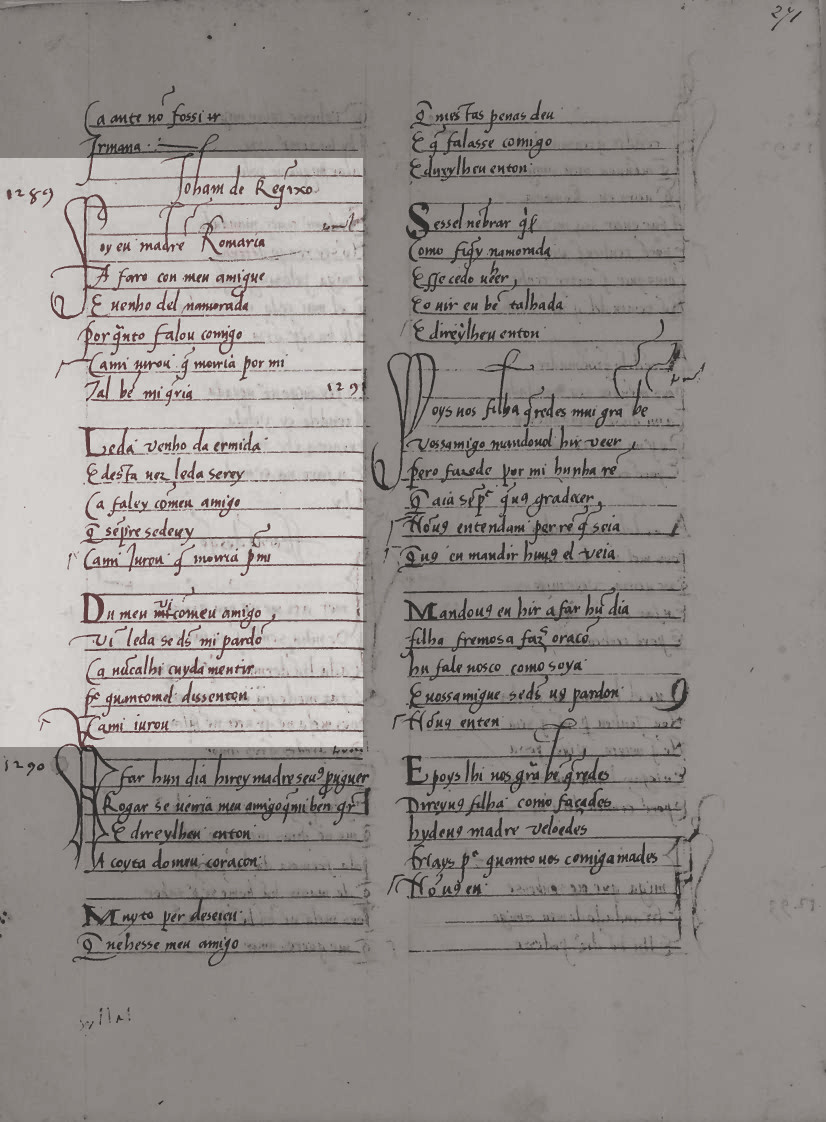 271
Ca ante nõ fossi ir
Irmana
1289
Joham de Reqixo
Foy eu madrẽ Romaria
A faro con meu amigue
E uenho del namorada
Por q̃nto falou comigo
Cami iurou q̃ moiria por mi
Tal bẽ mi q̃ria
Leda venho da ermida
E desta uez leda serey
Ca faley cõmeu amigo
Q̃ semp̃re sedeiey
Cami Iurou q̃ morria p̃mi
Du meu ui cõmeu amigo
Vĩ leda se ds̃ mi pardõ
Ca nũcalhi cuyda mentir
P̃ quantomel dissenton
Cami iurou
1290
A far hun dia hirey madre seuꝯ puguer
Rogar se uerria meu amigo q̃mi ben q̃r
E direylheu enton
A coyta do meu coraçon
Muyto per deseieu
Q̃ uehesse meu amigo
Q̃ mestas penas deu
E q̃ falasse comigo
E dixylheu enton
Sessel nẽbrar q̃s
Como fiq̃y namorada
Esse cedo uẽer
E o uir eu bẽ talhada
E direylheu enton
1291
Poys uos filha q̃redes mui grã bẽ
Vossamigo mandouol hir veer
Pero fazede por mi hunha rẽ
Q̃ aia semp̃ q̃uꝯ gradecer
Nõ uꝯ entendam per rẽ q̃ seia
Q̃uꝯ eu mandir hu uꝯ el veia
Mandouꝯ eu hir a far hũ dia
filha fremosa faz̃ oracõ
hu fale uosco como soya
E uossamigue se ds̃ uꝯ pardon
Nõ uꝯ enten
E poys lhi uos grã bẽ q̃redes
Direyuꝯ filha como façades
hyde uꝯ madre veloedes
P̃ quanto uos comigamades
Nõ uꝯ en